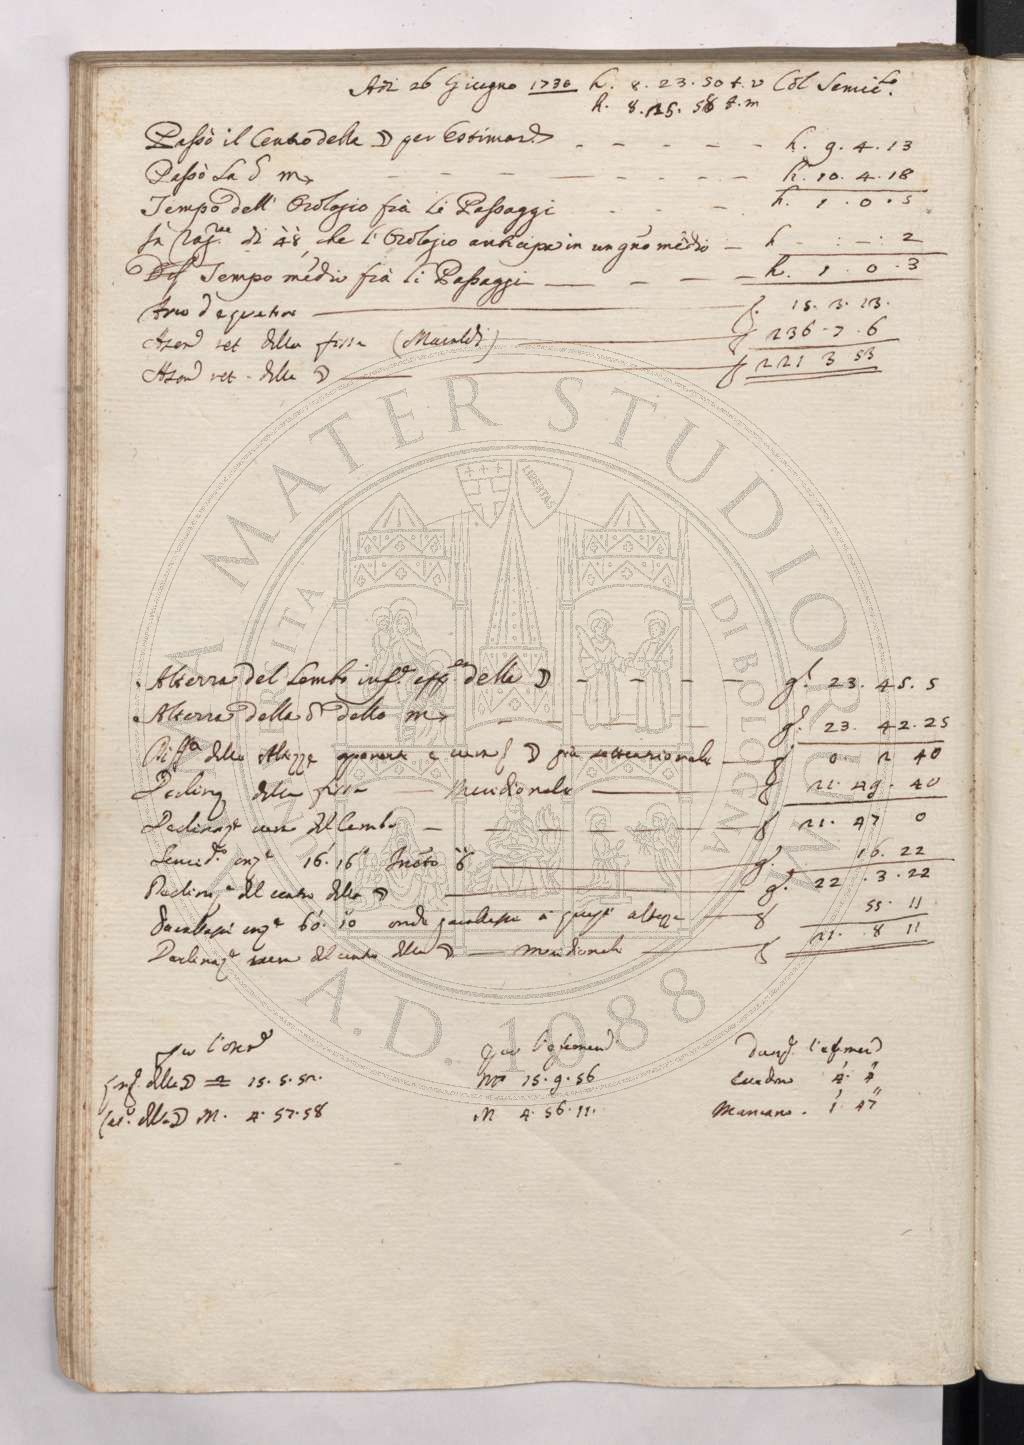 Adi 26 Giugno 1736 h. 8. 23. 50 t. v Col Semic.lo
h. 8. 25. 58 t. m
Passò il Centro della ☽ per l'estimaz.
h. 9. 4. 13
Passò la δ ♏
h. 10. 4. 18
Tempo dell' Orologio frà li Passaggi
h. 1. 0. 5
in rag.ne di 48 che l'Orologio anticipa in un g.no medio
h - : - : 2
Tempo médio frà li Passaggi
h. 1. 0. 3
Arco d'equatore
g. 15. 3. 13.
Ascen. ret. della fissa (Maraldi)
g 236. 7. 6
Ascen. ret. della ☽
g 221 3 53
Altezza del Lembo inf.e della ☽
g. 23. 45. 5
Altezza della δ dello ♏
g. 23. 42. 25
Diff.a delle Altezze apparente e vera ☽ più settentrionale
g 0. 2 40
Declinaz. della fissa Meridionale
g 21. 49. 40
Declinaz.e vera del Lembo
g 21. 47 0
Semid.o oriz.e 16. 16 6
g. 16. 22
Declinaz.e del centro della ☽
g. 22. 3. 22
Parallassi oriz.e 60. 10 onde parallasse à questa altezza
g 55 11
Declinaz.e vera del cento della ☽ Meridionale
g 21. 8 11
Per l'osser.
Per l'efemerid.
Long. della ☽ 15. 5. 52.
15. 9. 56
4. 4
Lat. della ☽ M. 4. 57. 58
M 4. 56. 11.
Mancano. 1. 47
ALMA MATER STUDIORUM
A.D. 1088
LIBERTAS
DI BOLOGNA